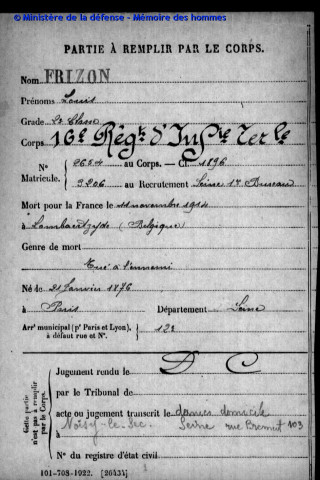 © Ministère de la défense - Mémoire des hommes
PARTIE À REMPLIR PAR LE CORPS.
Nom FRIZON
Prénoms Louis
Grade 2e Classe
Corps 16e Régt d'Infie Terle
N° Matricule. { 2654 au Corps. — Cl. 1896
3206 au Recrutement Seine 1er Bureau
Mort pour la France le 11 novembre 1914
à Lombaertzyde (Belgique)
Genre de mort
Tué à l'ennemi
Né le 21 Janvier 1876
à Paris Département Seine
Arrt municipal (pr Paris et Lyon), à défaut rue et N°. } 12e
Cette partie n'est pas à remplir par le Corps.
Jugement rendu le D C
par le Tribunal de
acte ou jugement transcrit le dernier domicile
à Noisy-le-Sec Seine rue 103
N° du registre d'état civil
101-708-1922. [26434]